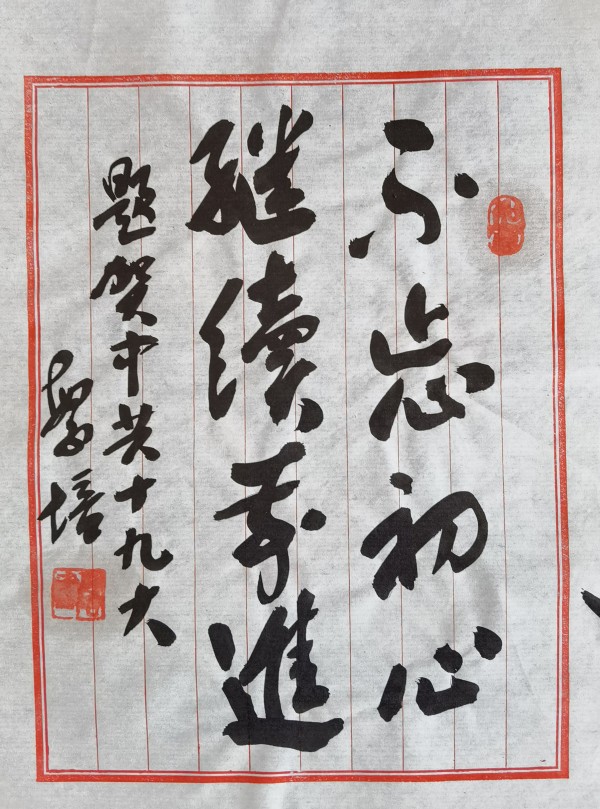 不忘初心
继续前進
题贺中共十九大
培